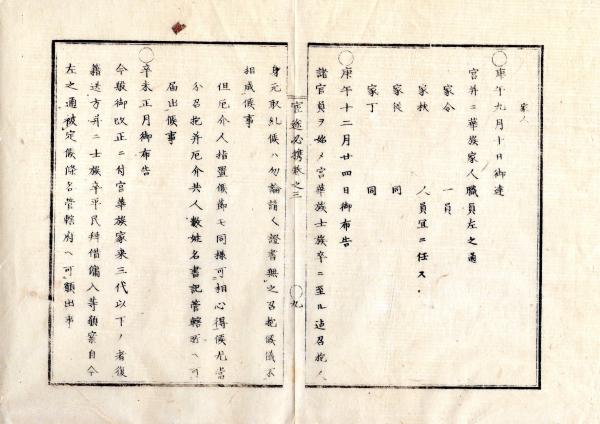 家人
○庚午九月十日御達
宮并ニ華族家人職員左之通
家令 一員
家扶 人員宜ニ任ス
家従 同
家丁 同
○庚午十二月廿四日御布告
諸官員ヲ始メ宮華族士族卒ニ至ル迄召抱ノ
官途必携巻之三
○九
身元取糺候ハ勿論請ケ證書無之召抱候儀不
相成候事
但厄介人指置候節モ同様可相心得候尤当
分召抱并厄介共人数姓名書記管轄所ヘ可
届出候事
○辛未正月御布告
今般御改正ニ付宮華族家来三代以下ノ者復
籍送方并ニ士族卒平民拝借傭入等願察自今
左之通被定候條名管轄府ヘ可願出事